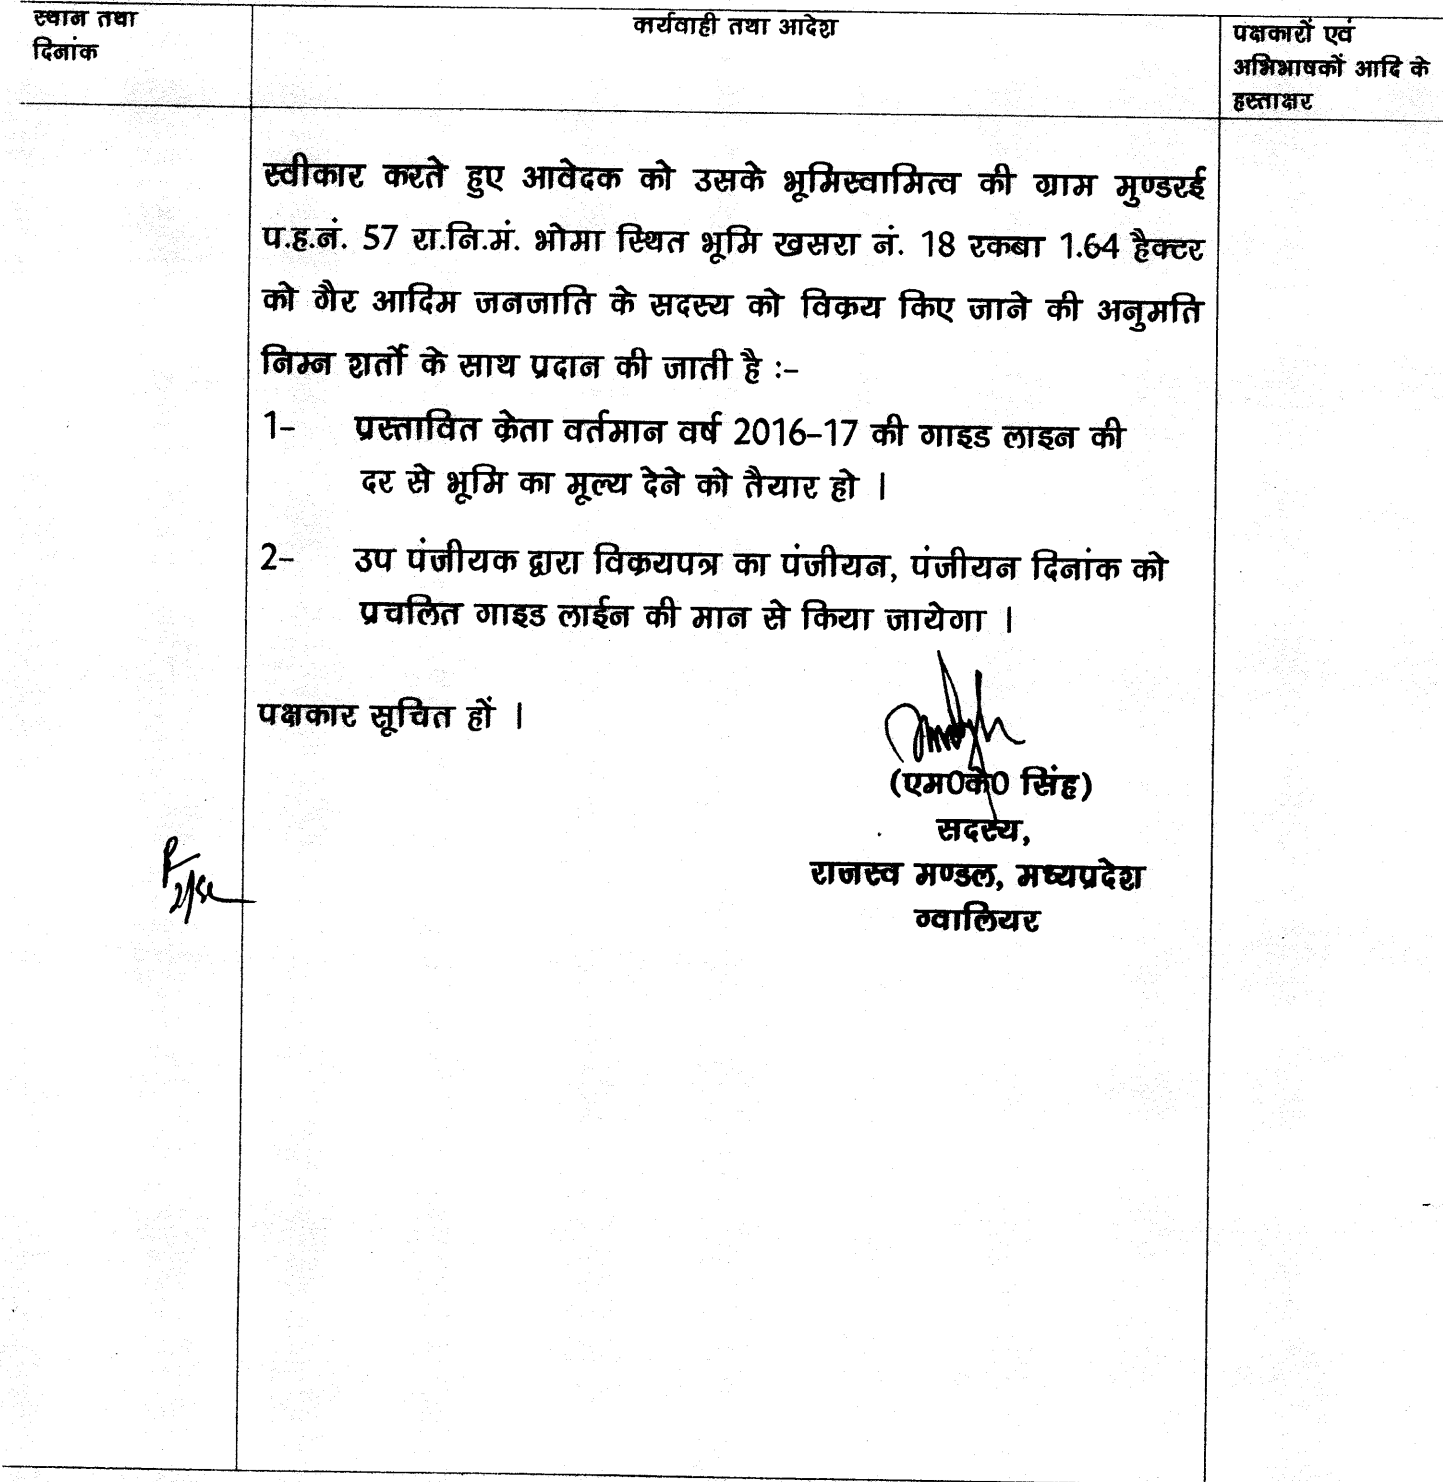 स्थान तथा
दिनांक
कार्यवाही तथा आदेश
पक्षकारों एवं
अभिभाषकों आदि के
हस्ताक्षर
स्वीकार करते हुए आवेदक को उसके भूमिस्वामित्व की ग्राम मुण्डरई
प.ह.नं. 57 रा.नि.मं. भोमा स्थित भूमि खसरा नं. 18 रकबा 1.64 हैक्टर
को गैर आदिम जनजाति के सदस्य को विक्रय किए जाने की अनुमति
निम्न शर्तो के साथ प्रदान की जाती है :–
1– प्रस्तावित क्रेता वर्तमान वर्ष 2016–17 की गाइड लाइन की
दर से भूमि का मूल्य देने को तैयार हो ।
2– उप पंजीयक द्वारा विक्रयपत्र का पंजीयन, पंजीयन दिनांक को
प्रचलित गाइड लाईन की मान से किया जायेगा ।
पक्षकार सूचित हों ।
(एम0के0 सिंह)
सदस्य,
राजस्व मण्डल, मध्यप्रदेश
ग्वालियर